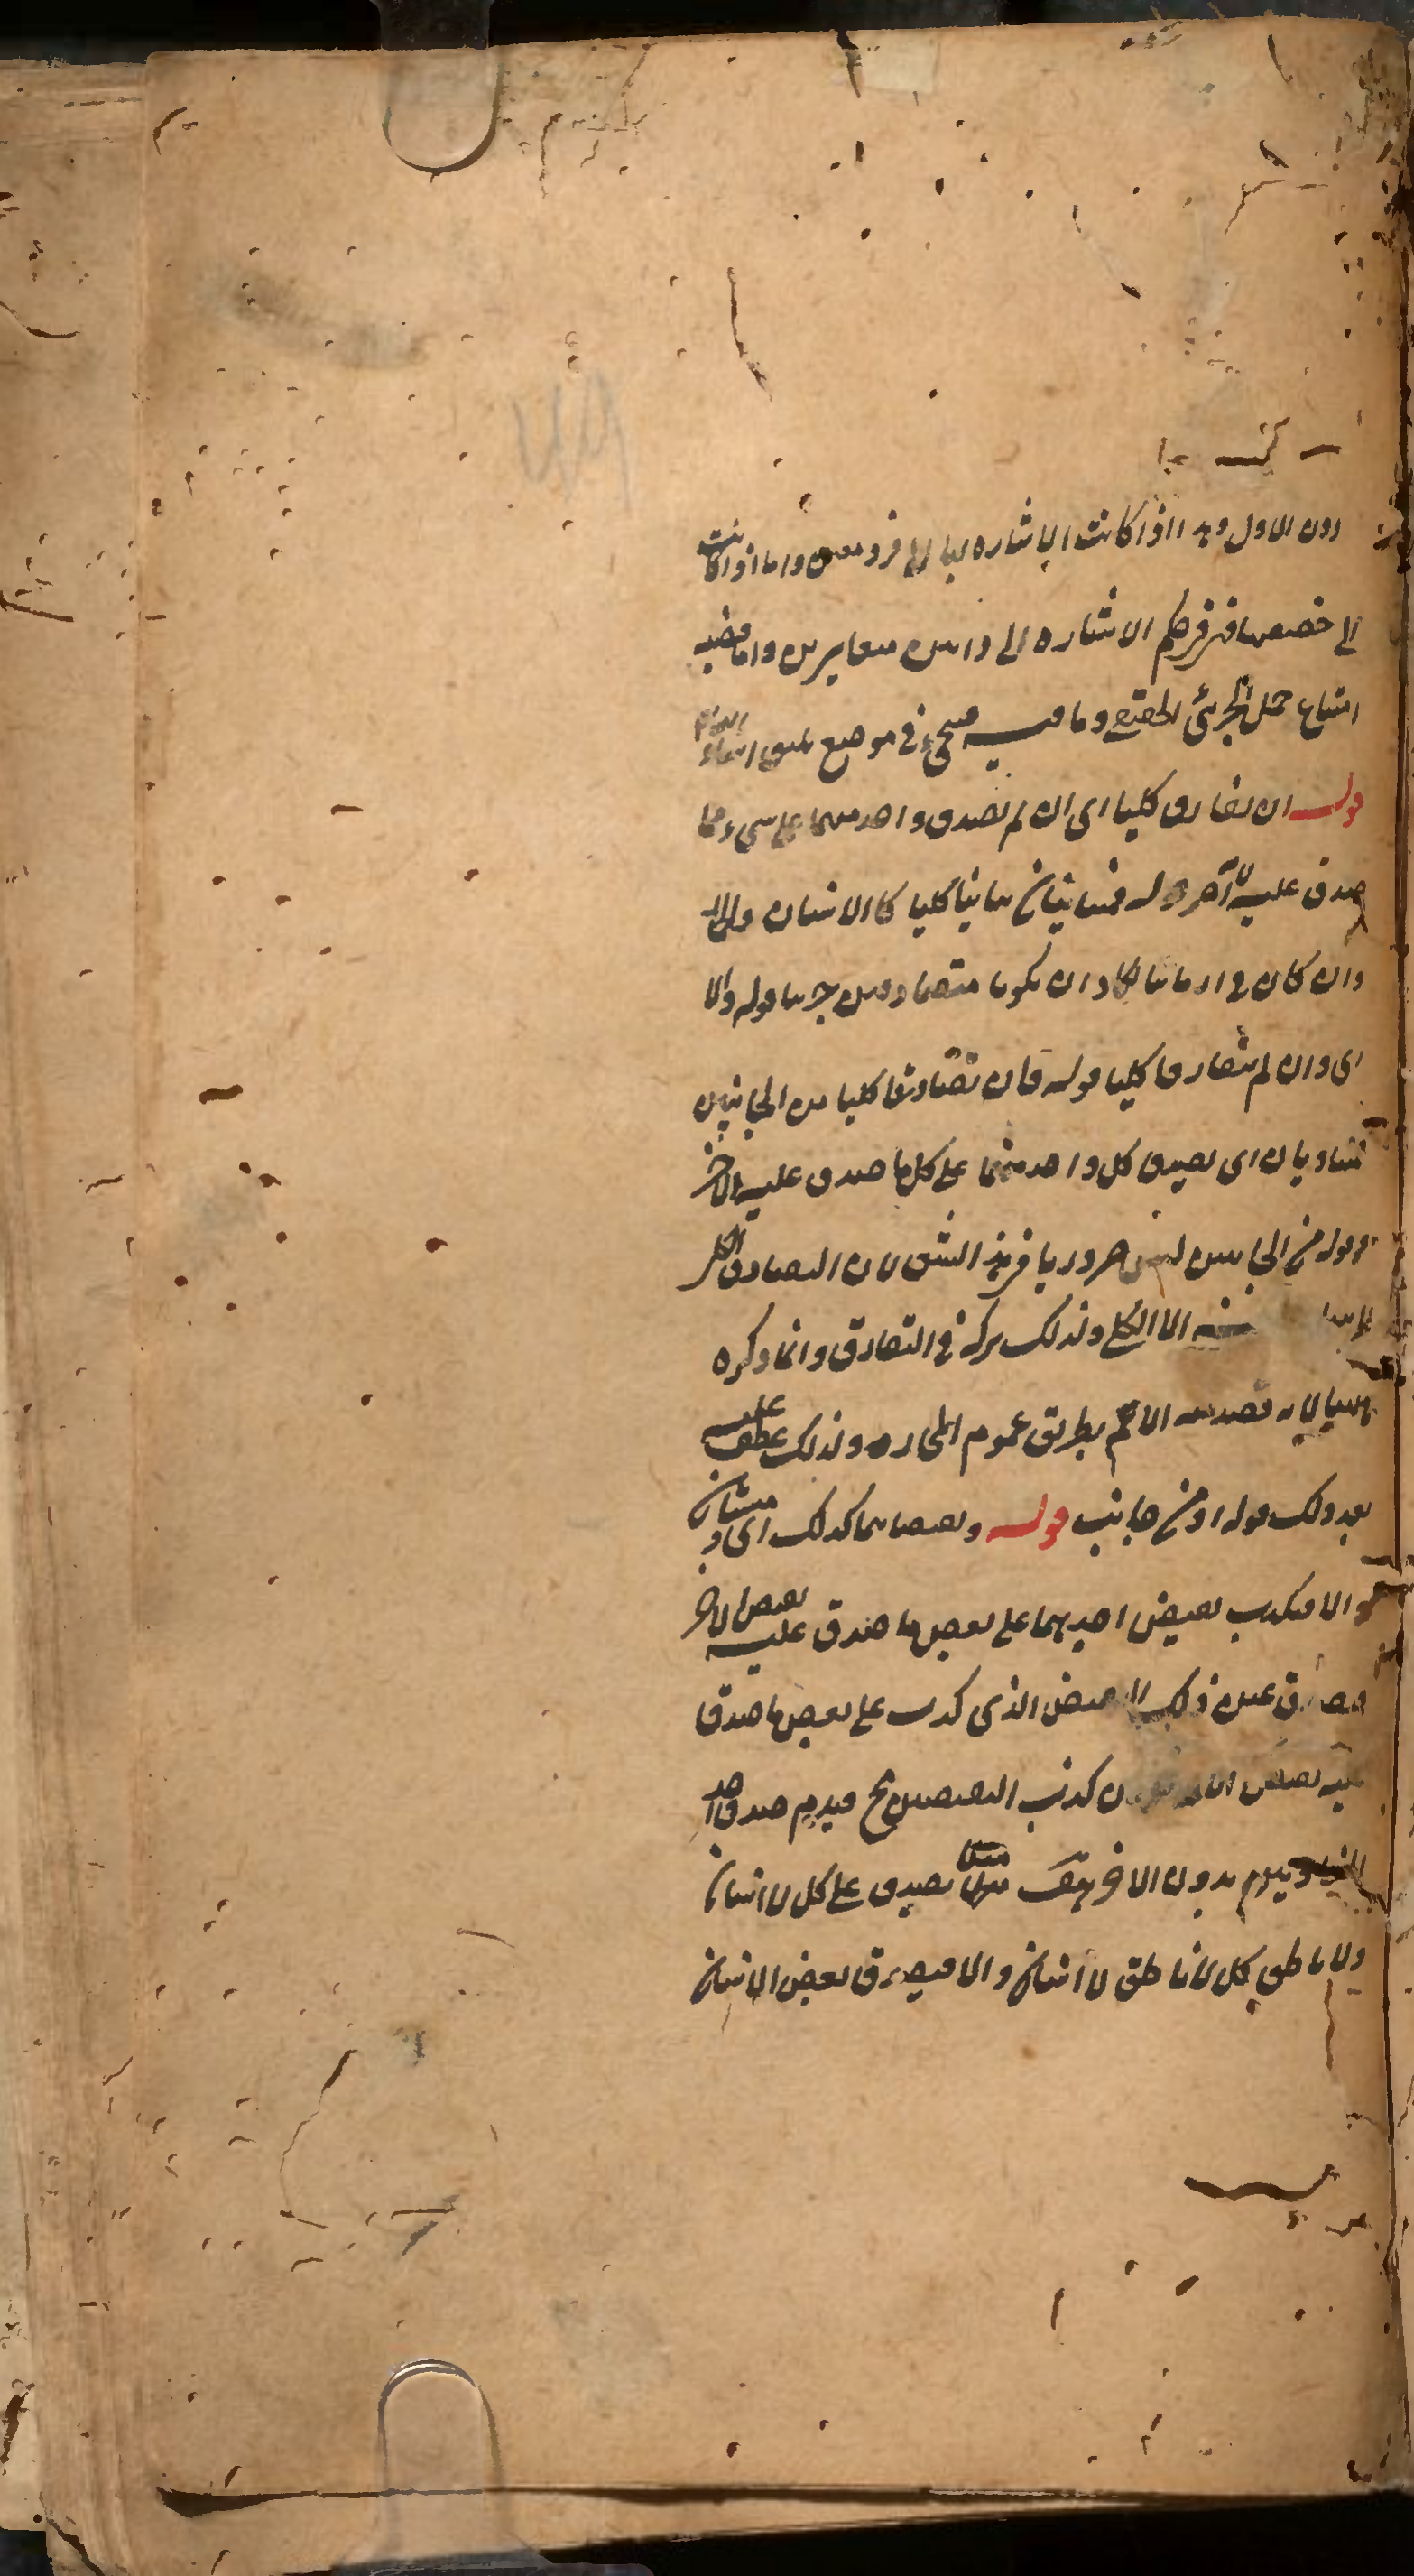 دون الاول وهذا اذا كانت الاشارة بها الى فرد معين واما اذا كانت
الى خصصها فهو في حكم الاشارة الى ذاتين متغايرين واما قضية
امتناع حمل الجزئي الحقيقي وما فيه فسيجيء في موضع يليق
قوله ان تفارقا كليا اى ان لم يصدق واحد منهما على شيء مما
صدق عليه الآخر قوله فمتباينان تباينا كليا كالانسان
وان كان في ازمان ان يكونا متصادقين جزئيا قوله والا
اى وان لم يتفارقا كليا قوله فان تصادقا كليا من الجانبين
فمتساويان اى يصدق كل واحد منهما على كل ما صدق عليه الآخر
وقوله من الجانبين ليس ضروريا في هذا الشق لان التصادق الكلي
الا الكلي ولذلك تركه في التفارق وانما ذكره
ههنا لانه قصد به الاعم بطريق عموم المجاز ولذلك عطف عليه
بعد ذلك قوله او من جانب قوله ونقيضاهما كذلك اى متساويان
والا فيكذب نقيض احدهما على بعض ما صدق عليه نقيض الآخر
فيصدق عين ذلك النقيض الذى كذب على بعض ما صدق
عليه نقيض الآخر كذب النقيضين مح فيلزم صدق احد
بدون الآخر هف مثلا يصدق على كل لا انسان
ولا ناطق كل لا ناطق لا انسان والا فيصدق بعض الانسان